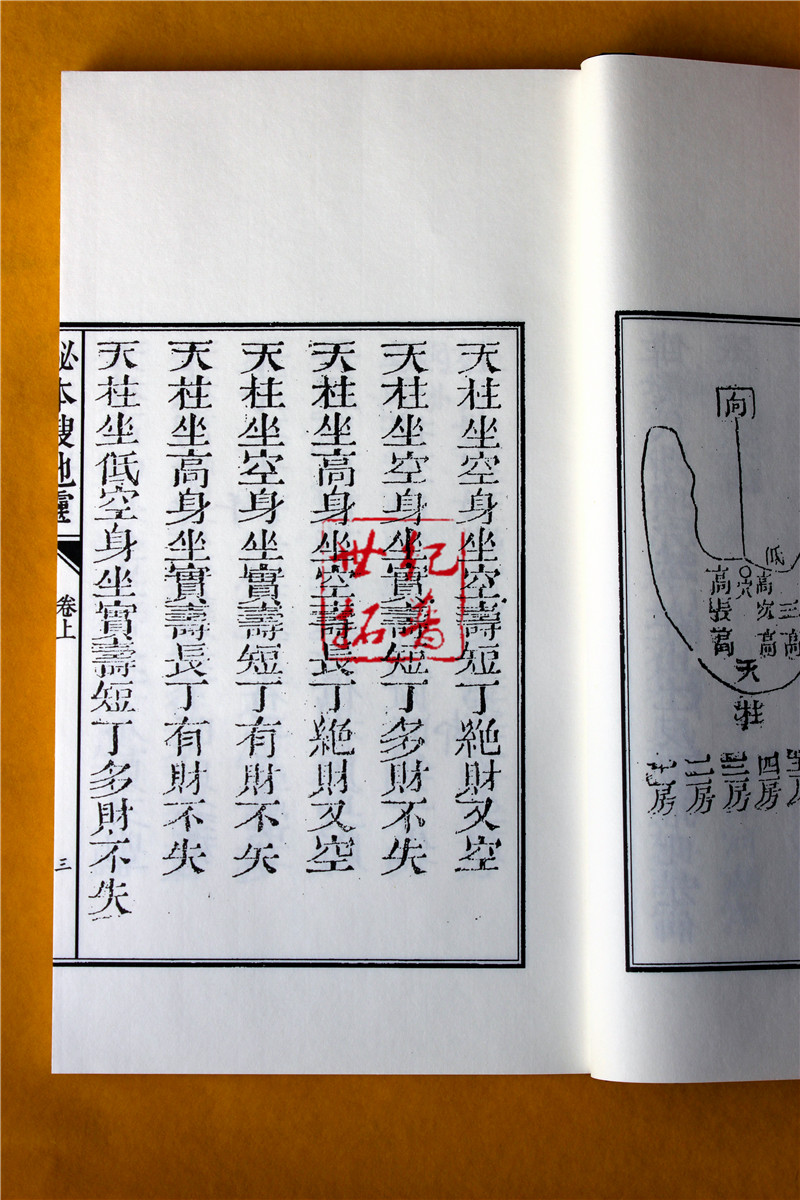 向
低
穴
天柱
四房
三房
二房
天柱坐空身坐空壽短丁絶財又空
天柱坐空身坐實壽短丁多財不失
天柱坐高身坐空壽長丁絶財又空
天柱坐空身坐實壽短丁有財不矢
天柱坐高身坐實壽長丁有財不失
天柱坐低空身坐實壽短丁多財不失
秘本搜地靈
卷上
三
世纪
拓普